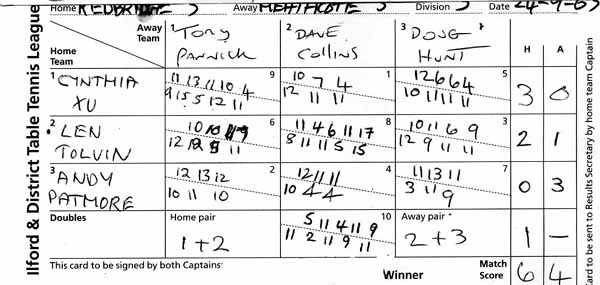 Ilford & District Table Tennis League
Home REDBRIDGE 3 Away HEATHCOTE 3 Division 3 Date 24-9-03
Away Team 1 TONY PANNICK 2 DAVE COLLINS 3 DOUG HUNT H A
Home Team
1 CYNTHIA XU 9 11 13 11 10 4 1 10 7 4 5 12 6 6 4 3 0
9 15 5 12 11 12 11 11 10 11 11 11
2 LEN TOLVIN 6 10 10 9 8 11 4 6 11 17 3 10 11 6 9 2 1
12 11 8 11 11 5 15 12 9 11 11
3 ANDY PATMORE 2 12 13 12 4 12 11 11 7 11 13 11 0 3
10 11 10 10 4 4 3 11 9
Doubles Home pair 1+2 10 5 11 4 11 9 Away pair 2+3 1 -
11 2 11 9 11
This card to be signed by both Captains Winner Match Score 6 4
Card to be sent to Results Secretary by home team Captain